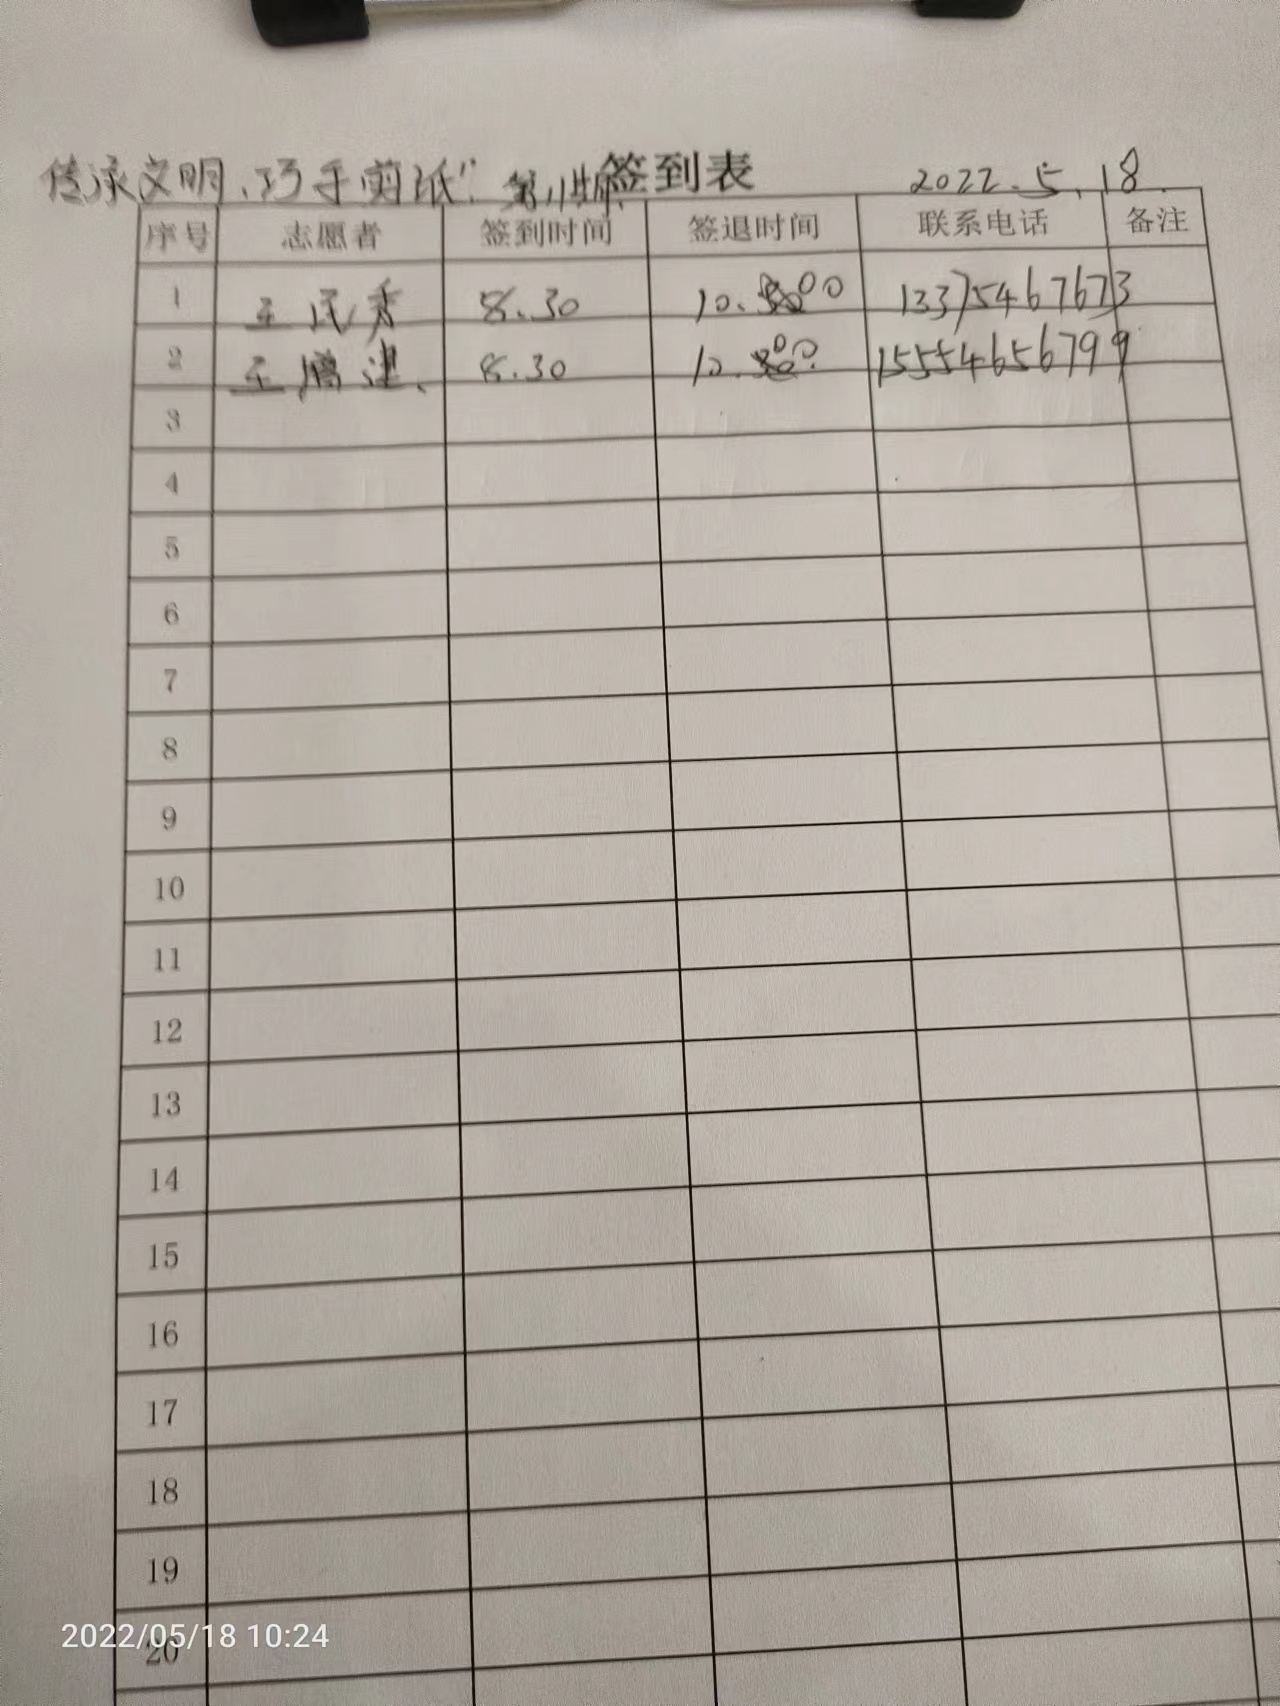 传承文明、巧手剪纸" 签到表 2022.5.18
序号 志愿者 签到时间 签退时间 联系电话 备注
1 王民秀 8.30 10.00 13375467673
2 王 8.30 10.00 15554656799
3
4
5
6
7
8
9
10
11
12
13
14
15
16
17
18
19
20
2022/05/18 10:24